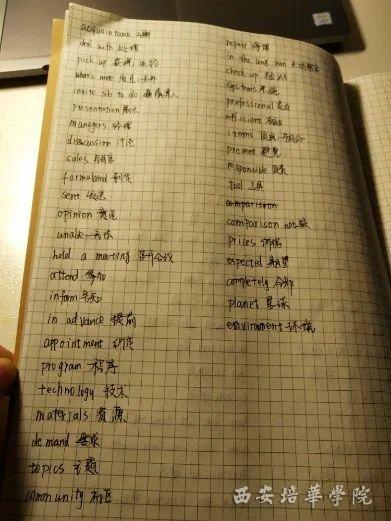 acquaintance
deal with 处理
pick up
what's more 而且
invite sb to do
presentation
managers 经理
disscussion 讨论
sales 销售
formulated 制定
sent
opinion 意见
unable 无法
hold a meeting 召开会议
attend 参加
inform 告知
in advance 提前
appointment 约定
program 程序
technology 技术
materials 资源
demand 要求
topics 主题
community 社区
repair 修理
in the long run
check up
systems 系统
professional
efficient
items
prevent 避免
responsible
tool 工具
comparison 比较
prices 价格
expected 期望
completely 全部
planet 星球
enviroment 环境
西安培華學院